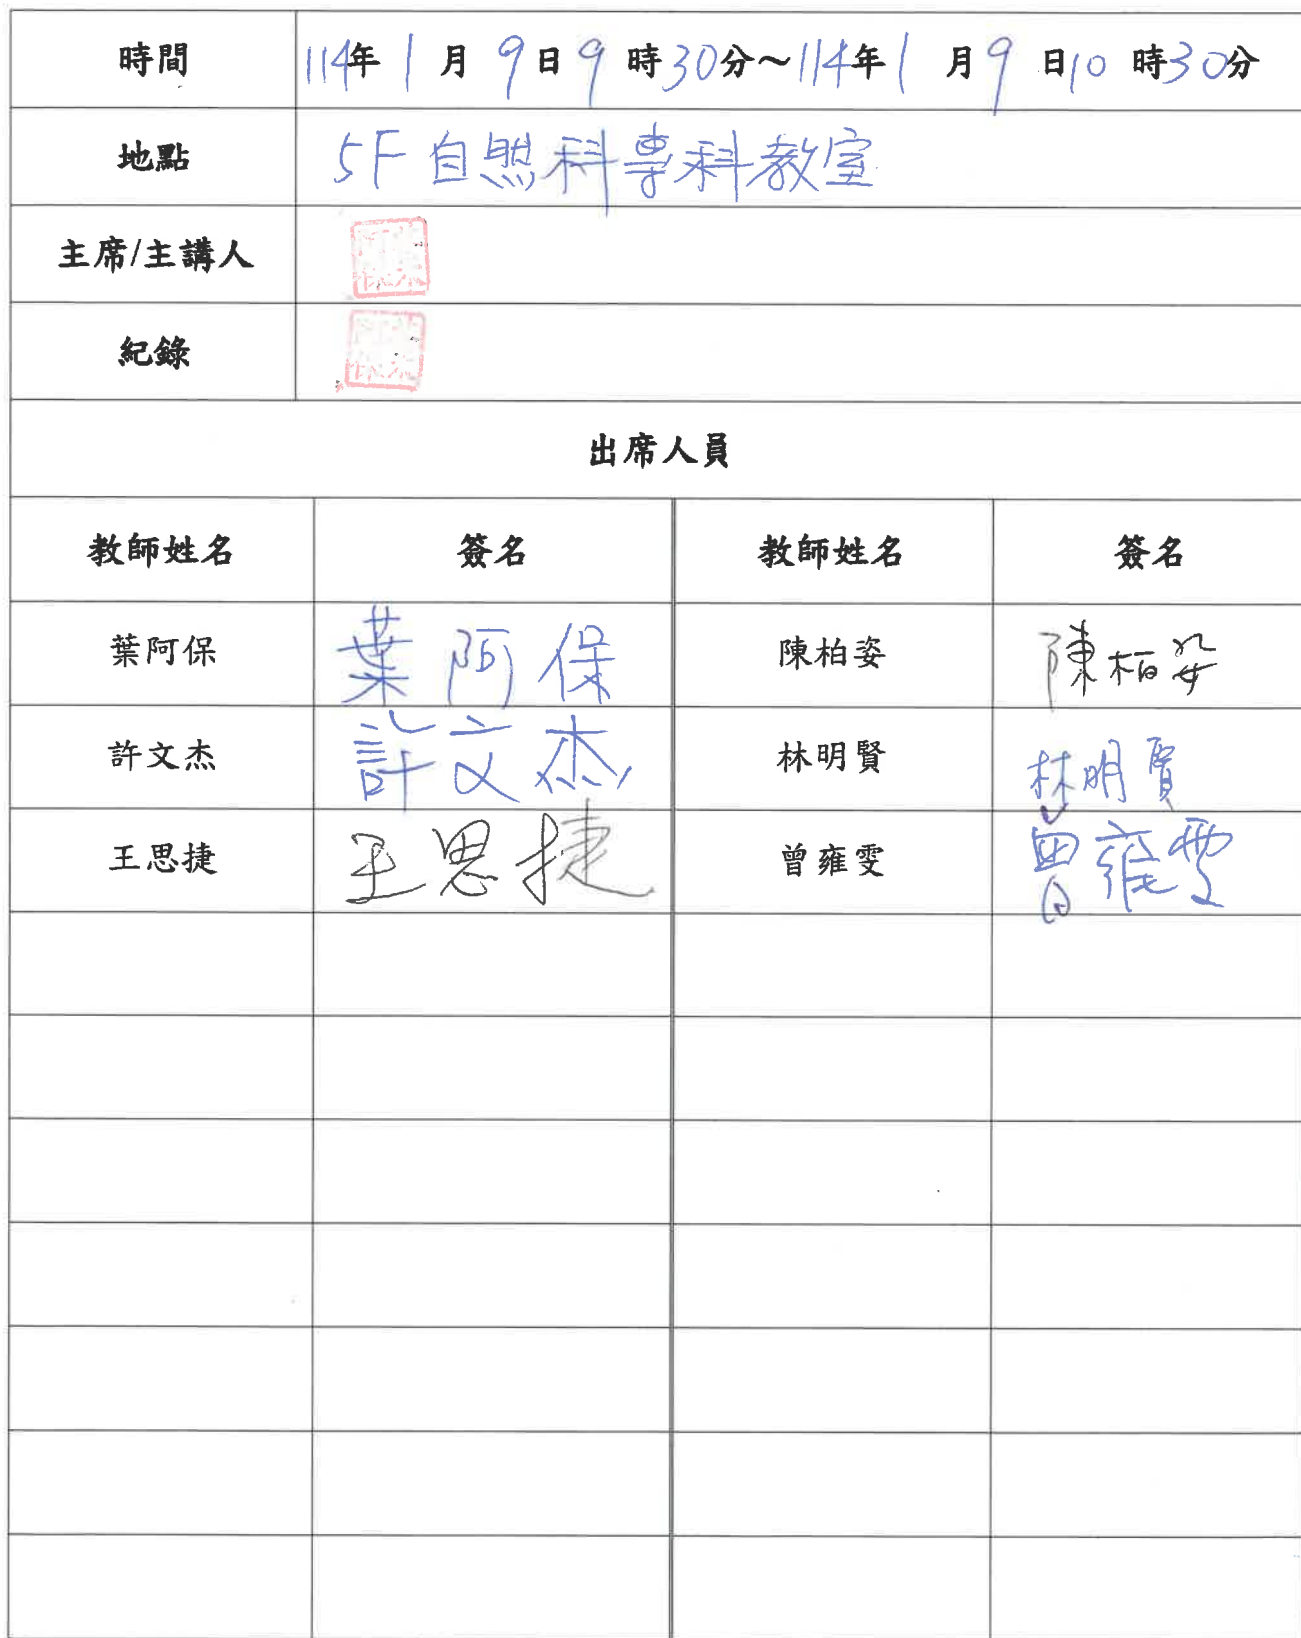 時間 114年 1 月 9日 9 時 30分～114年 1 月 9 日 10 時 30分
地點 5F 自然科專科教室
主席/主講人
紀錄
出席人員
教師姓名 簽名 教師姓名 簽名
葉阿保 葉阿保 陳柏姿 陳柏姿
許文杰 許文杰 林明賢 林明賢
王思捷 王思捷 曾雍雯 曾雍雯